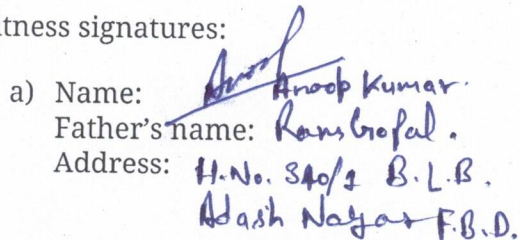 tness signatures:
a) Name: Anoop Kumar.
Father's name: Ram Gopal.
Address: H.No. 340/1 B.L.B.
Adash Nagar F.B.D.